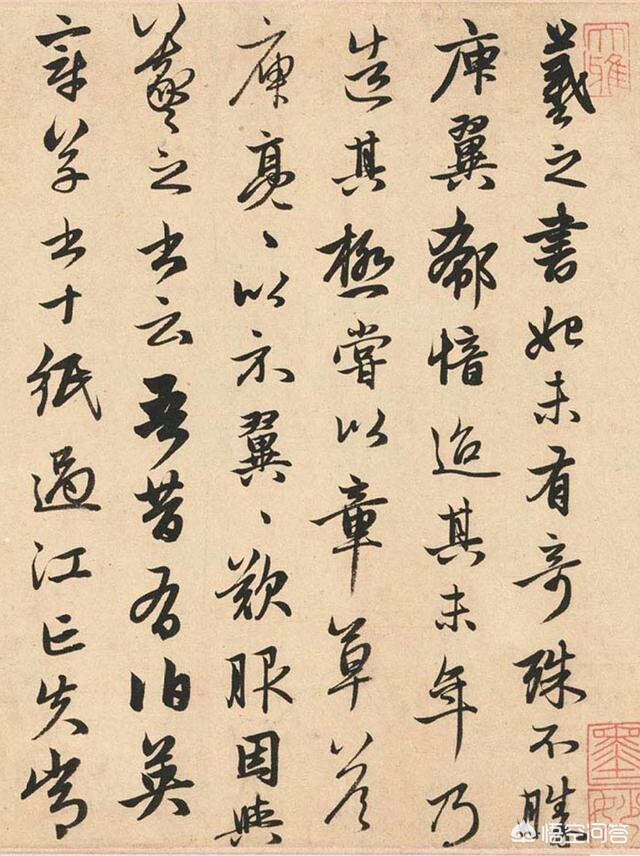 羲之書始未有奇殊不勝
庾翼郗愔迨其末年乃
造其極嘗以章草答
庾亮〻以示翼〻歎服因與
羲之書云吾昔有伯英
章草書十紙過江亡失常
大雅
悟空问答